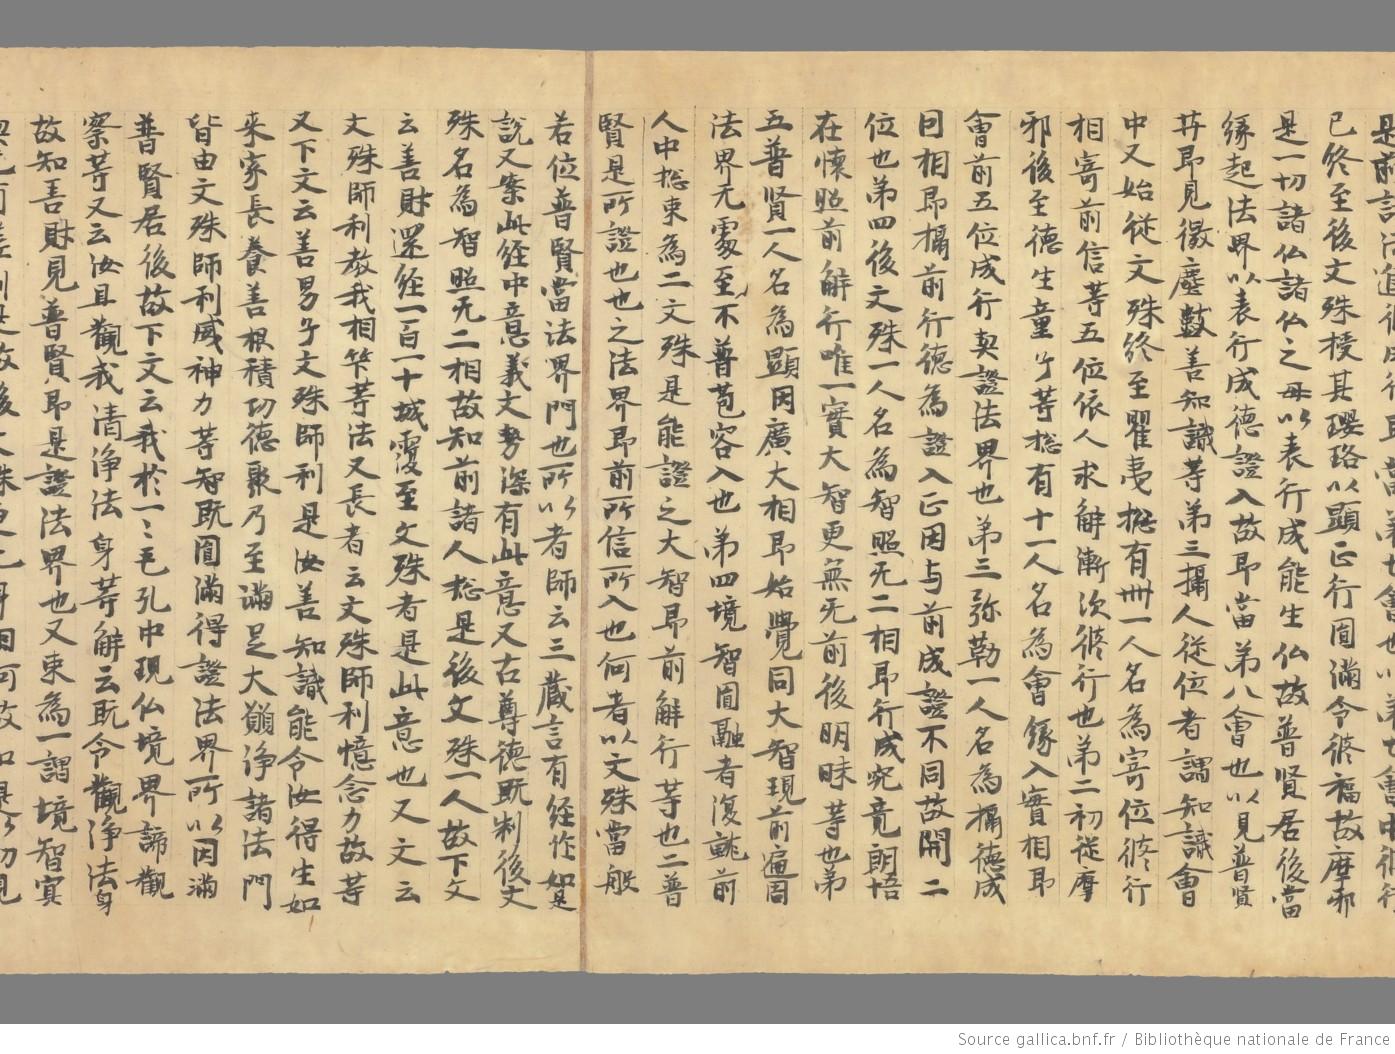 已終至後文殊授其瓔珞以顯正行圓滿令脩福故摩耶
是一切諸仏諸仏之母以表行成能生仏故普賢居後當
緣起法界以表行成德證入故即當第八會也以見普賢
并即見微塵數善知識等第三攝人從位者謂知識會
中又始從文殊終至瞿夷揔有卌一人名為寄位脩行
相寄前信等五位依人求解漸次脩行也第二初從摩
耶後至德生童子等揔有十一人名為會緣入實相即
會前五位成行契證法界也第三弥勒一人名為攝德成
因相即攝前行德為證入正因与前成證不同故開二
位也第四後文殊一人名為智照无二相即行成究竟朗悟
在懷照前解行唯一實大智更無无前後明昧等也第
五普賢一人名為顯因廣大相即始覺同大智現前遍周
法界无處至不普苞容入也第四境智圓融者復就前
人中揔束為二文殊是能證之大智即前解行等也二普
賢是所證也也之法界即前所信所入也何者以文殊當般
若位普賢當法界門也所以者師云三藏言有經作如是
說又案此經中意義大勢深有此意又古尊德既判後文
殊名為智照无二相故知前諸人揔是後文殊一人故下文
云善財還經一百一十城霞至文殊者是此意也又文云
文殊師利教我相等法又長者云文殊師利憶念力故等
又下文云善男子文殊師利是汝善知識能令汝得生如
来家長養善根積功德聚乃至滿足大願浄諸法門
皆由文殊師利威神力等智既圓滿得證法界所以因滿
普賢居後故下文云我於一〻毛孔中現仏境界諦觀
察等又云汝且觀我清浄法身等解云既令觀浄法身
故知善財見普賢即是證法界也又束為一謂境智冥